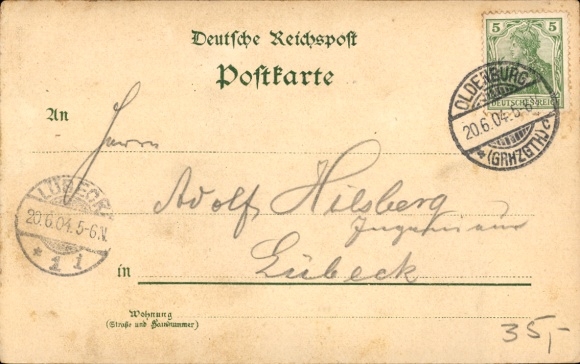 Deutsche Reichspost
Postkarte
5 5
DEUTSCHES REICH
OLDENBURG
20.6.04.5-6
(GRHZGTH.)
An
Herrn
Adolf Hilsberg
Ingenieur
in Lübeck
LÜBECK
20.6.04.5-6.N.
* 1 1
Wohnung
(Straße und Hausnummer)
35,-